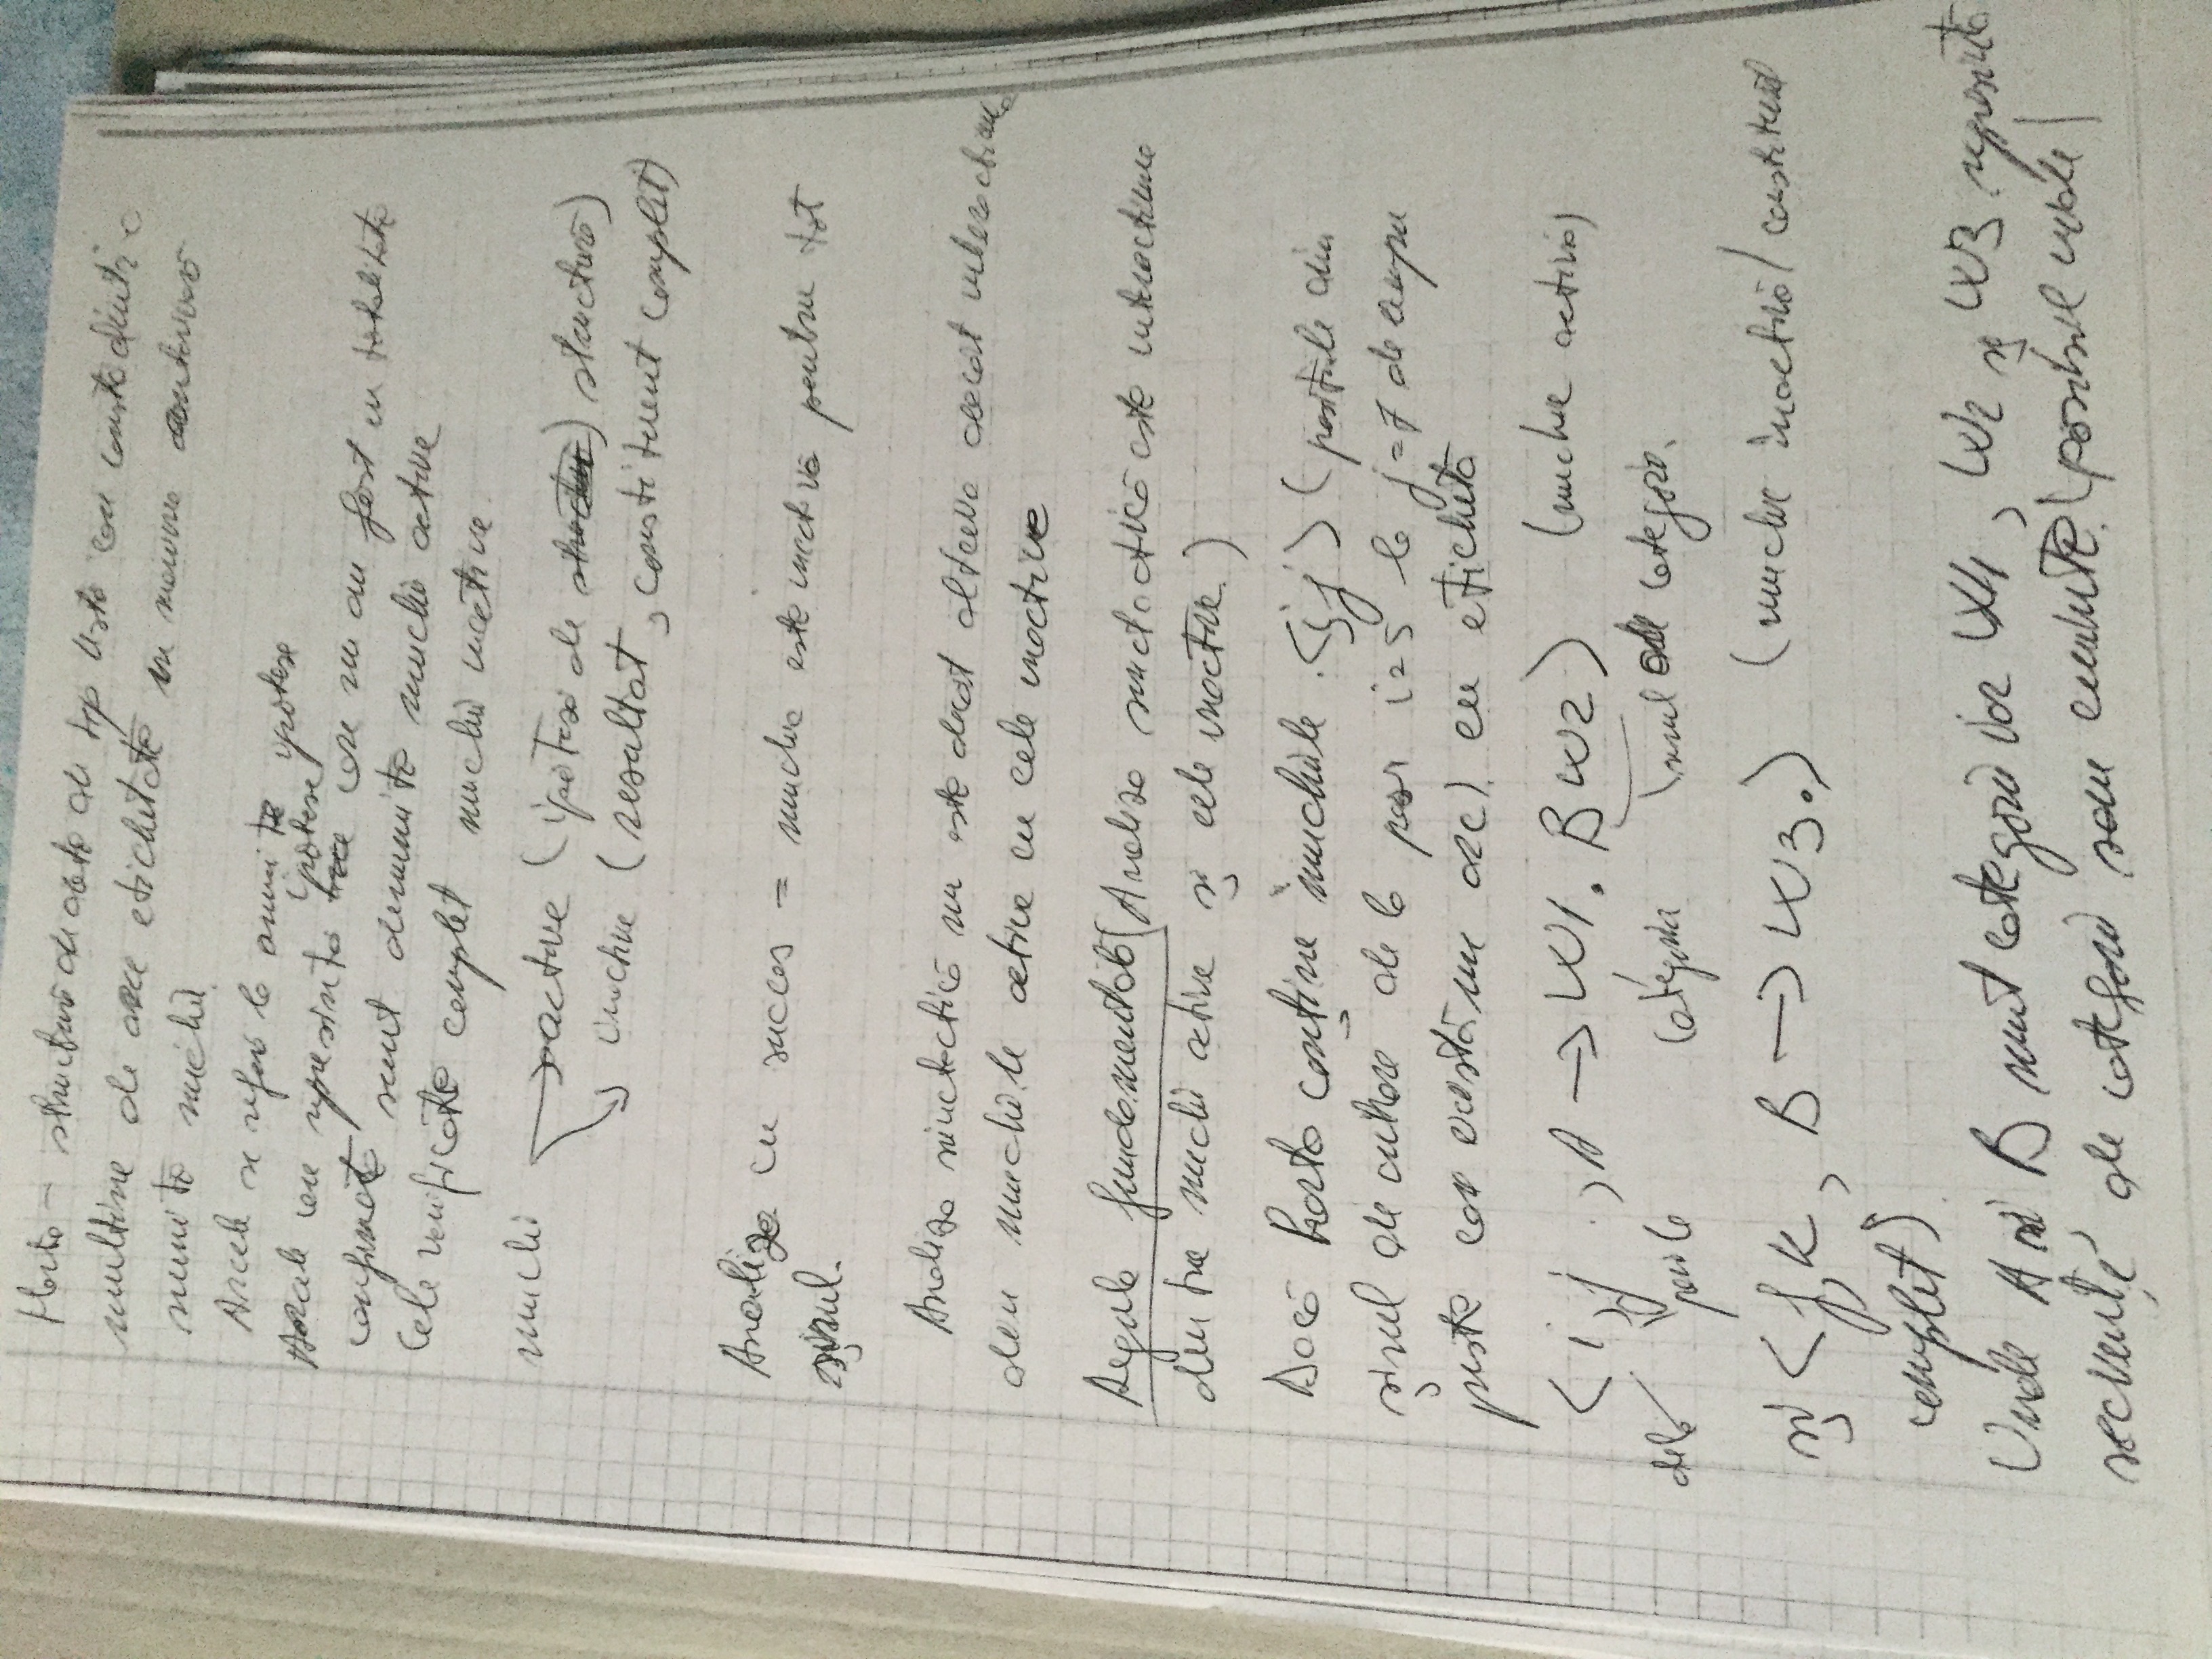 Harta - structură de date de tip listă care constă dintr-o
mulțime de arce etichetate în maniera
numite muchii.
Arcele se referă la anumite ipoteze
Arcele care reprezintă ipoteze care nu au fost în totalitate
confirmate sunt denumite muchii active
Cele verificate complet muchii inactive.
muchii → active (ipoteză de structură)
inactive (rezultat, constituent complet)
Analiza cu succes = muchie este inactivă pentru tot
șirul.
Analiza sintactică nu este decât altceva decât interacțiunea
din muchiile active cu cele inactive
Regula fundamentală (Analiza sintactică este interacțiunea
dintre muchii active și cele inactive.)
Dacă harta conține muchiile <i,j> (pozițiile din
șirul de intrare de la poz i=5 la j=7 de exemplu
peste care există un arc). cu eticheta
<i,j , A → W1. B W2> (muchie activă)
de la până la categoria șirul de categorii.
și <j,k, B → W3.> (muchie inactivă/constituent
complet)
Unde A și B sunt categorii iar W1, W2 și W3 reprezintă
secvențe de categorii sau cuvinte. (posibil vide)